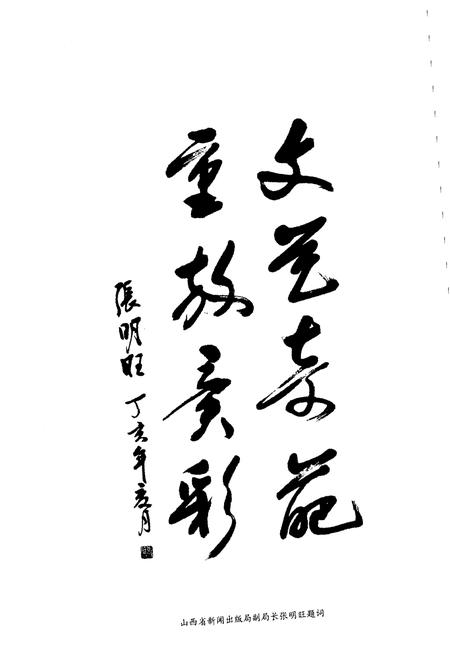 文艺奇葩
重放異彩
張明旺 丁亥年夏月
山西省新闻出版局副局长张明旺题词